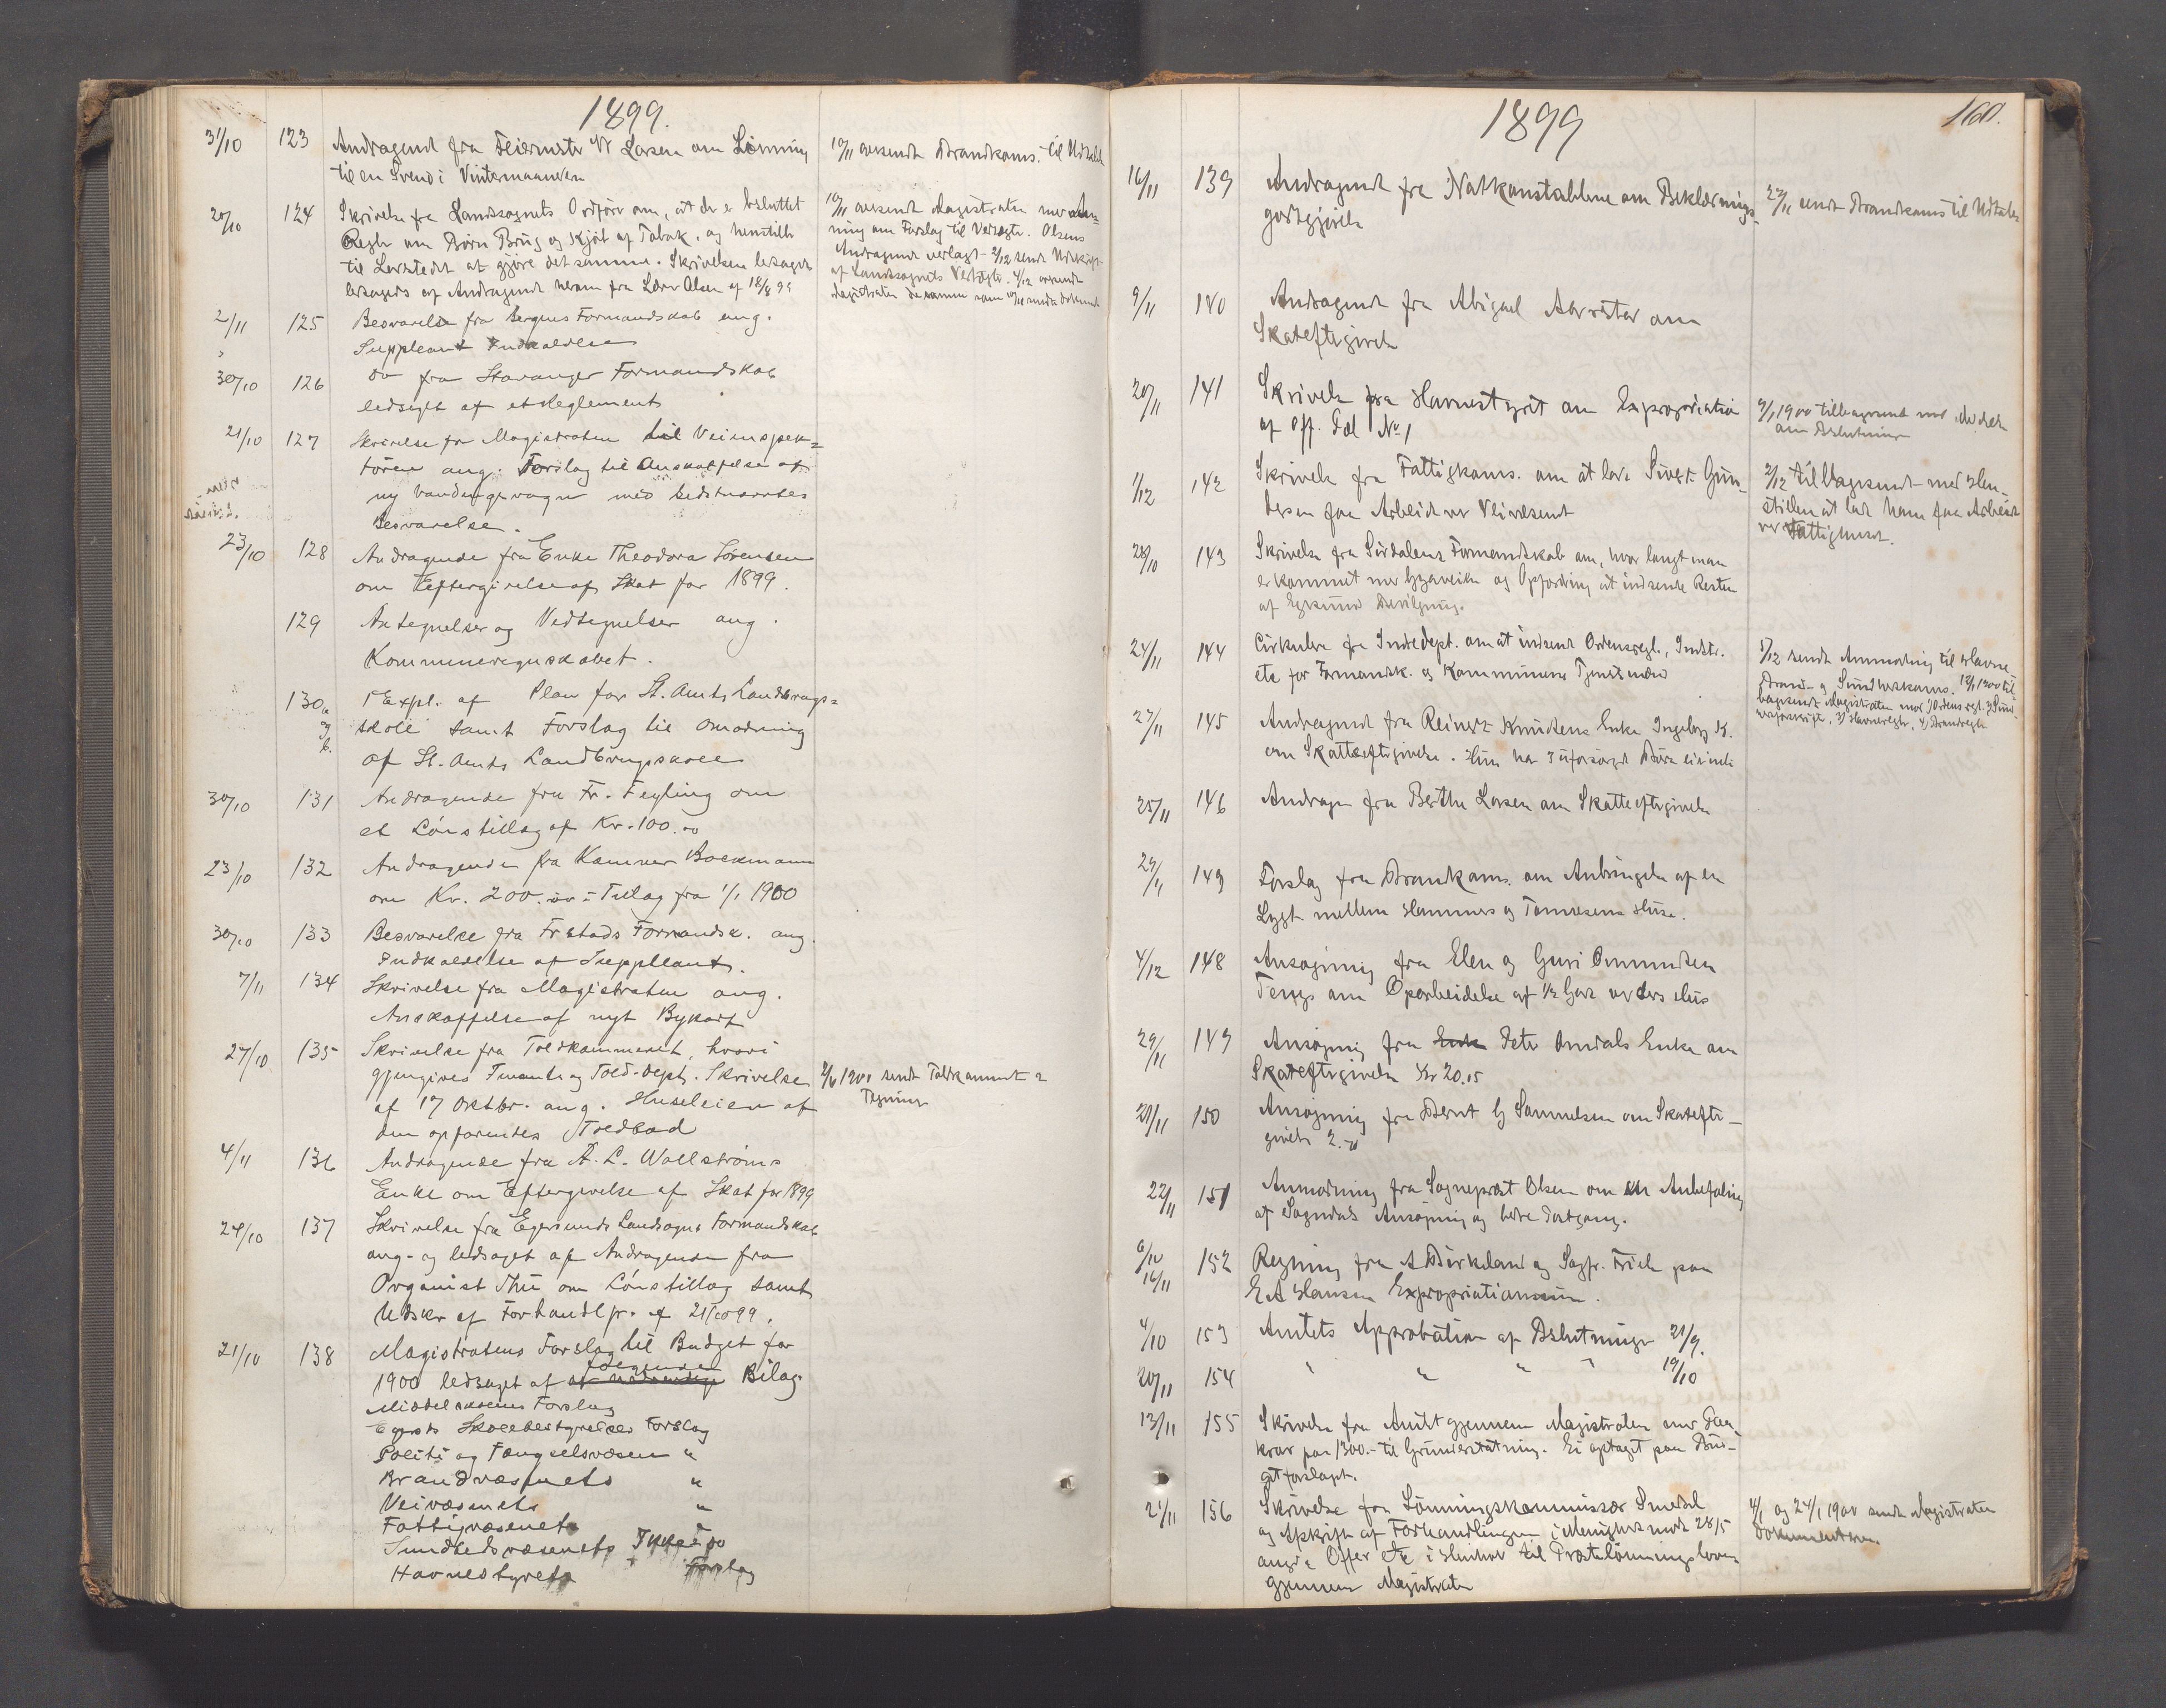 1899.
31/10 123 Andragend fra Feiermester Larsen om Lönning 10/11 oversendt Brandkoms. til Udtalelse
til en Svend i Vintermaanden
20/10 124 Skrivelse fra Landssognets Ordförer om, at der er besluttet 10/11 oversendt Magistraten med
Regler om Börns Brug og Kjöb af Tabak, og henstiller ning om Forslag til Vedtægter. Olsens
til Ladestedet at gjöre det samme. Skrivelsen ledsaget Andragende vedlagt 2/12 sendt Udskrift
ledsages af Andragende herom fra Lærer Olsen af 18/8 99 af Landssognets Vedtægter. 4/12 oversendt
Magistraten
2/11 125 Besvarelse fra Bergens Formandskab ang.
Suppleant Indkaldelse
30/10 126 Do fra Stavanger Formandskab
ledsaget af et Reglement
21/10 127 Skrivelse fra Magistraten til Veiinspek=
tören ang. Forslag til Anskaffelse af
ny Vandingsvogn med sidstnævntes
Besvarelse.
23/10 128 Andragende fra Enke Theodora Sörensen
om Eftergivelse af Skat for 1899.
129 Antegnelser og Vedtegnelser ang.
Kommuneregnskabet.
130 a og b. 1 Expl. af Plan for St. Amts Landbrugs=
skole samt Forslag til Omordning
af St. Amts Landbrugsskole
30/10 131 Andragende fra Fr. Feyling om
et Lönstillæg af Kr. 100.00
23/10 132 Andragende fra Kæmner Boekmann
om Kr. 200.00 i Tillæg fra 1/1 1900
30/10 133 Besvarelse fra Frstads Formandsk. ang.
Indkaldelse af Suppleant.
7/11 134 Skrivelse fra Magistraten ang.
Anskaffelse af nyt Bykart
27/10 135 Skrivelse fra Toldkammeret, hvori
gjengives Finants og Told-Dept. Skrivelse sendt Toldkammeret
af 17 Oktbr. ang. Husleien af Tegning
den opförendes Toldbod
4/11 136 Andragende fra A. L. Wallströms
Enke om Eftergivelse af Skat for 1899
24/10 137 Skrivelse fra Egersunds Landsogns Formandskab
ang. og ledsaget af Andragende fra
Organist Thu om Lönstillæg samt
Udskr af Forhandl pr. af 21/10 99.
21/10 138 Magistratens Forslag til Budget for
1900 ledsaget af fölgende Bilag
Middelskolens Forslag
Egersds Skolebestyrelses Forslag
Politi og Fængselsvæsen "
Brandvæsenets "
Veivæsenets "
Fattigvæsenets "
Sundhedsvæsenets
Havnestyrets Forslag
1899 160.
16/11 139 Andragende fra Natkonstablene om Beklædnings- 23/11 sendt Brandkoms til Udtalelse
godtgjörelse
9/11 140 Andragende fra Abigael om
Skateftergivelse
20/11 141 Skrivelse fra Havnestyret om Expropriation 9/1 1900 tilbagesendt med Meddel
af Off. Del No 1 om Beslutningen
1/12 142 Skrivelse fra Fattigkoms. om at lade Sivert Gun- 2/12 tilbagesendt med Hen-
dersen faa Arbeide ved Veivæsenet stillen at lade ham faa Arbeide
ved Fattighuset.
28/10 143 Skrivelse fra Sirdalens Formandskab om, hvor langt man
er kommet med Gyaveien og Opfordring at indsende Resten
af Egersund Bevilgning.
24/11 144 Cirkulære fra Indredept. om at indsende Ordensregl., Instr. 5/12 sendt Anmodning til Havne-
etc for Formandsk. og Kommunens Tjenstmænd Brand- og Sundhedskoms. 13/1 1900 til-
bagesendt Magistraten med 1) Ordens regl.
3) Havneregler, 4) Brandregler
27/11 145 Andragende fra Reinert Knudsens Enke Ingeborg K.
om Skatteeftergivelse. Hun har 3 uforsörgede Börn
25/11 146 Andragen fra Berthe Larsen om Skatteeftergivelse
29/11 149 Forslag fra Brandkoms. om Anbringelse af en
Lygt mellem Hammers og Tönnesens Huse.
4/12 148 Ansögning fra Elen og Guri Ommundsen
Tengs om Oparbeidelse af 1/2 Gade ved deres Hus
29/11 149 Ansögning fra Peter Omdals Enke om
Skateftergivelse Kr 20.15
20/11 150 Ansögning fra Bernt G Samuelsen om Skatefter-
givelse
22/11 151 Anmodning fra Sogneprest Olsen om en Anbefaling
af Sogndals Ansögning og bedre Postgang.
6/10 16/11 152 Regning fra A Birkeland og Sagfr. Friele paa
E A Hansen Expropriationen.
4/10 153 Amtets Approbation af Beslutninger 21/9.
20/11 154 " " " " 19/10
13/11 155 Skrivelse fra Amtet gjennem Magistraten med Paa-
krav paa 1300.- til Grunderstatning. Ei optaget paa Bud-
getforslaget.
21/11 156 Skrivelse fra Lönningskommissær Smedal 4/1 og 24/1 1900 sendt Magistraten
og Afskrift af Forhandlingen i Menighedsmöde 28/5 Dokumenterne.
angde Offer etc i Henhold til Præstelönningsloven
gjennem Magistraten